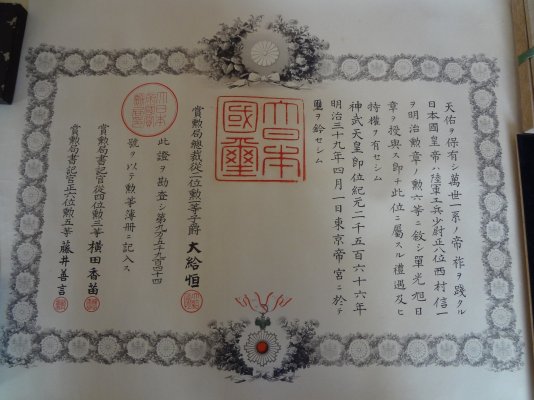 天佑ヲ保有シ萬世一系ノ帝祚ヲ踐タル
日本國皇帝ハ陸軍工兵少尉正八位西村信一
ヲ明治勲章ノ勲六等ニ敘シ單光旭日
章ヲ授與ス即チ此位ニ屬スル禮遇及ヒ
特權ヲ有セシム
神武天皇即位紀元二千五百六十六年
明治三十九年四月一日東京帝宮ニ於テ
璽ヲ鈐セシム
大日本
國璽
賞勲局總裁從二位勲一等子爵 大給恒
此證ヲ勘査シ第九万五千九百四十四
號ヲ以テ勲等簿冊ニ記入ス
賞勲局書記官從四位勲三等 横田香苗
賞勲局書記官正六位勲五等 藤井善言